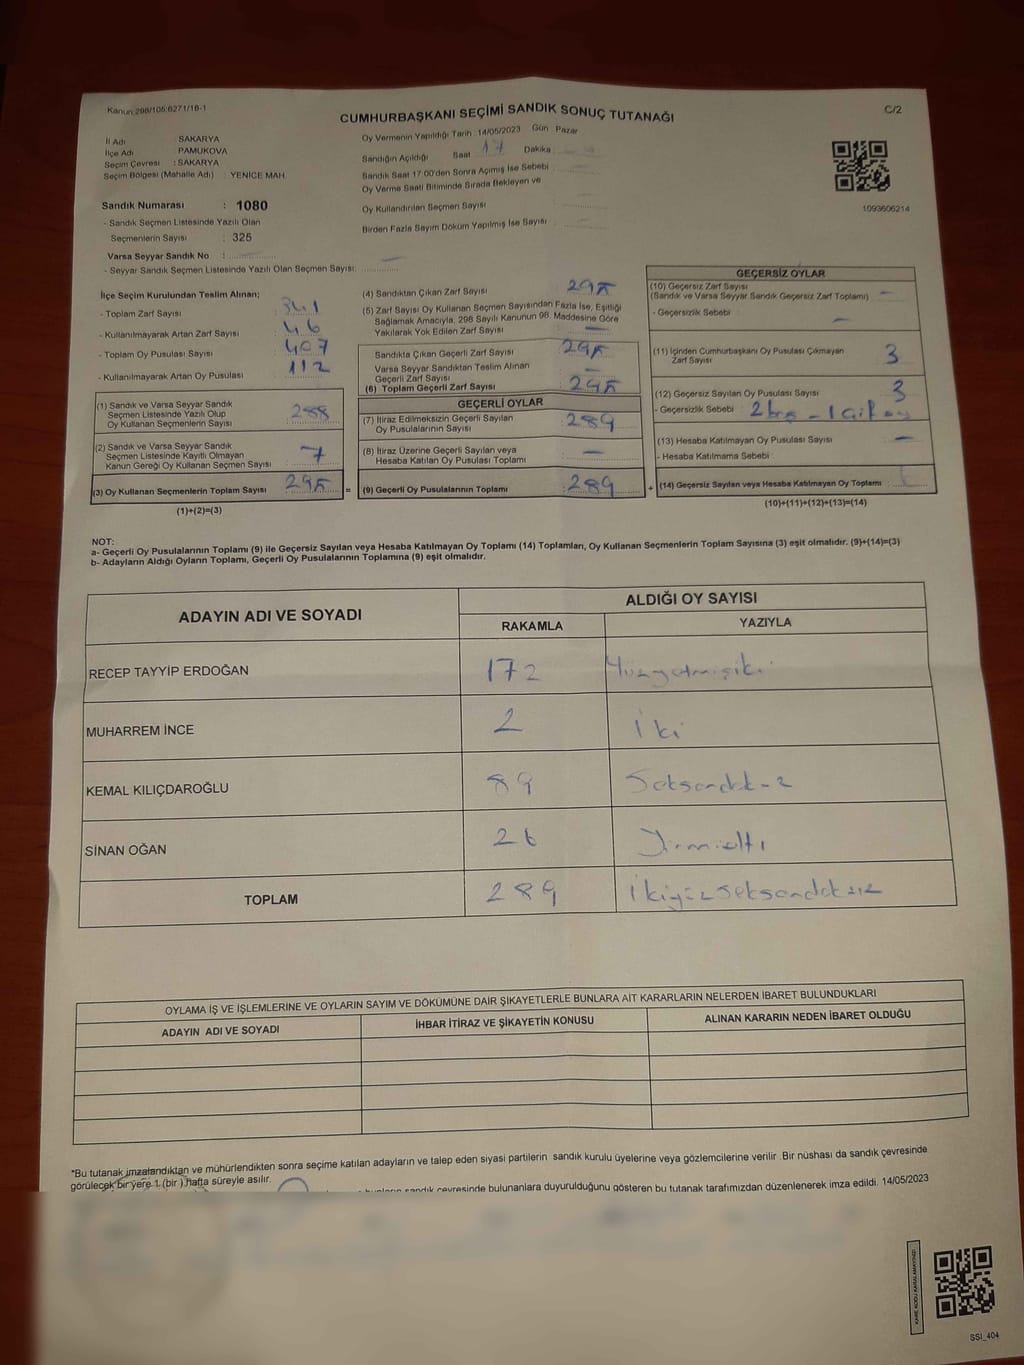 Kanun 298/105;6271/18-1
C/2
CUMHURBAŞKANI SEÇİMİ SANDIK SONUÇ TUTANAĞI
İl Adı SAKARYA
İlçe Adı PAMUKOVA
Seçim Çevresi : SAKARYA
Seçim Bölgesi (Mahalle Adı) : YENICE MAH.
Oy Vermenin Yapıldığı Tarih : 14/05/2023 Gün Pazar
Sandığın Açıldığı Saat 17 Dakika
Sandık Saat 17:00'den Sonra Açımış İse Sebebi
Oy Verme Saati Bitiminde Sırada Bekleyen ve
Oy Kullandırılan Seçmen Sayısı
Birden Fazla Sayım Döküm Yapılmış İse Sayısı
1093606214
Sandık Numarası : 1080
- Sandık Seçmen Listesinde Yazılı Olan
Seçmenlerin Sayısı : 325
Varsa Seyyar Sandık No :
- Seyyar Sandık Seçmen Listesinde Yazılı Olan Seçmen Sayısı:
İlçe Seçim Kurulundan Teslim Alınan;
- Toplam Zarf Sayısı : 341
- Kullanılmayarak Artan Zarf Sayısı : 46
- Toplam Oy Pusulası Sayısı : 407
- Kullanılmayarak Artan Oy Pusulası : 112
(1) Sandık ve Varsa Seyyar Sandık
Seçmen Listesinde Yazılı Olup
Oy Kullanan Seçmenlerin Sayısı : 288
(2) Sandık ve Varsa Seyyar Sandık
Seçmen Listesinde Kayıtlı Olmayan
Kanun Gereği Oy Kullanan Seçmen Sayısı : 7
(3) Oy Kullanan Seçmenlerin Toplam Sayısı : 295 =
(1)+(2)=(3)
(4) Sandıktan Çıkan Zarf Sayısı : 295
(5) Zarf Sayısı Oy Kullanan Seçmen Sayısından Fazla İse, Eşitliği
Sağlamak Amacıyla, 298 Sayılı Kanunun 98. Maddesine Göre
Yakılarak Yok Edilen Zarf Sayısı : —
Sandıkta Çıkan Geçerli Zarf Sayısı : 295
Varsa Seyyar Sandıktan Teslim Alınan
Geçerli Zarf Sayısı : —
(6) Toplam Geçerli Zarf Sayısı : 295
GEÇERLİ OYLAR
(7) İtiraz Edilmeksizin Geçerli Sayılan
Oy Pusulalarının Sayısı : 289
(8) İtiraz Üzerine Geçerli Sayılan veya
Hesaba Katılan Oy Pusulası Toplamı : —
(9) Geçerli Oy Pusulalarının Toplamı : 289 +
GEÇERSİZ OYLAR
(10) Geçersiz Zarf Sayısı : —
(Sandık ve Varsa Seyyar Sandık Geçersiz Zarf Toplamı)
- Geçersizlik Sebebi : —
(11) İçinden Cumhurbaşkanı Oy Pusulası Çıkmayan
Zarf Sayısı : 3
(12) Geçersiz Sayılan Oy Pusulası Sayısı : 3
- Geçersizlik Sebebi : 2 boş - 1 Çift oy
(13) Hesaba Katılmayan Oy Pusulası Sayısı : —
- Hesaba Katılmama Sebebi :
(14) Geçersiz Sayılan veya Hesaba Katılmayan Oy Toplamı :
(10)+(11)+(12)+(13)=(14)
NOT:
a- Geçerli Oy Pusulalarının Toplamı (9) ile Geçersiz Sayılan veya Hesaba Katılmayan Oy Toplamı (14) Toplamları, Oy Kullanan Seçmenlerin Toplam Sayısına (3) eşit olmalıdır. (9)+(14)=(3)
b- Adayların Aldığı Oyların Toplamı, Geçerli Oy Pusulalarının Toplamına (9) eşit olmalıdır.
ADAYIN ADI VE SOYADI
ALDIĞI OY SAYISI
RAKAMLA YAZIYLA
RECEP TAYYİP ERDOĞAN 172 Yüzyetmişiki
MUHARREM İNCE 2 iki
KEMAL KILIÇDAROĞLU 89 Seksendokuz
SİNAN OĞAN 26 Yirmialtı
TOPLAM 289 ikiyüzseksendokuz
OYLAMA İŞ VE İŞLEMLERİNE VE OYLARIN SAYIM VE DÖKÜMÜNE DAİR ŞİKAYETLERLE BUNLARA AİT KARARLARIN NELERDEN İBARET BULUNDUKLARI
ADAYIN ADI VE SOYADI İHBAR İTİRAZ VE ŞİKAYETİN KONUSU ALINAN KARARIN NEDEN İBARET OLDUĞU
*Bu tutanak imzalandıktan ve mühürlendikten sonra seçime katılan adayların ve talep eden siyasi partilerin sandık kurulu üyelerine veya gözlemcilerine verilir. Bir nüshası da sandık çevresinde
görülecek bir yere 1 (bir) hafta süreyle asılır.
sandık çevresinde bulunanlara duyurulduğunu gösteren bu tutanak tarafımızdan düzenlenerek imza edildi. 14/05/2023
SSI_404